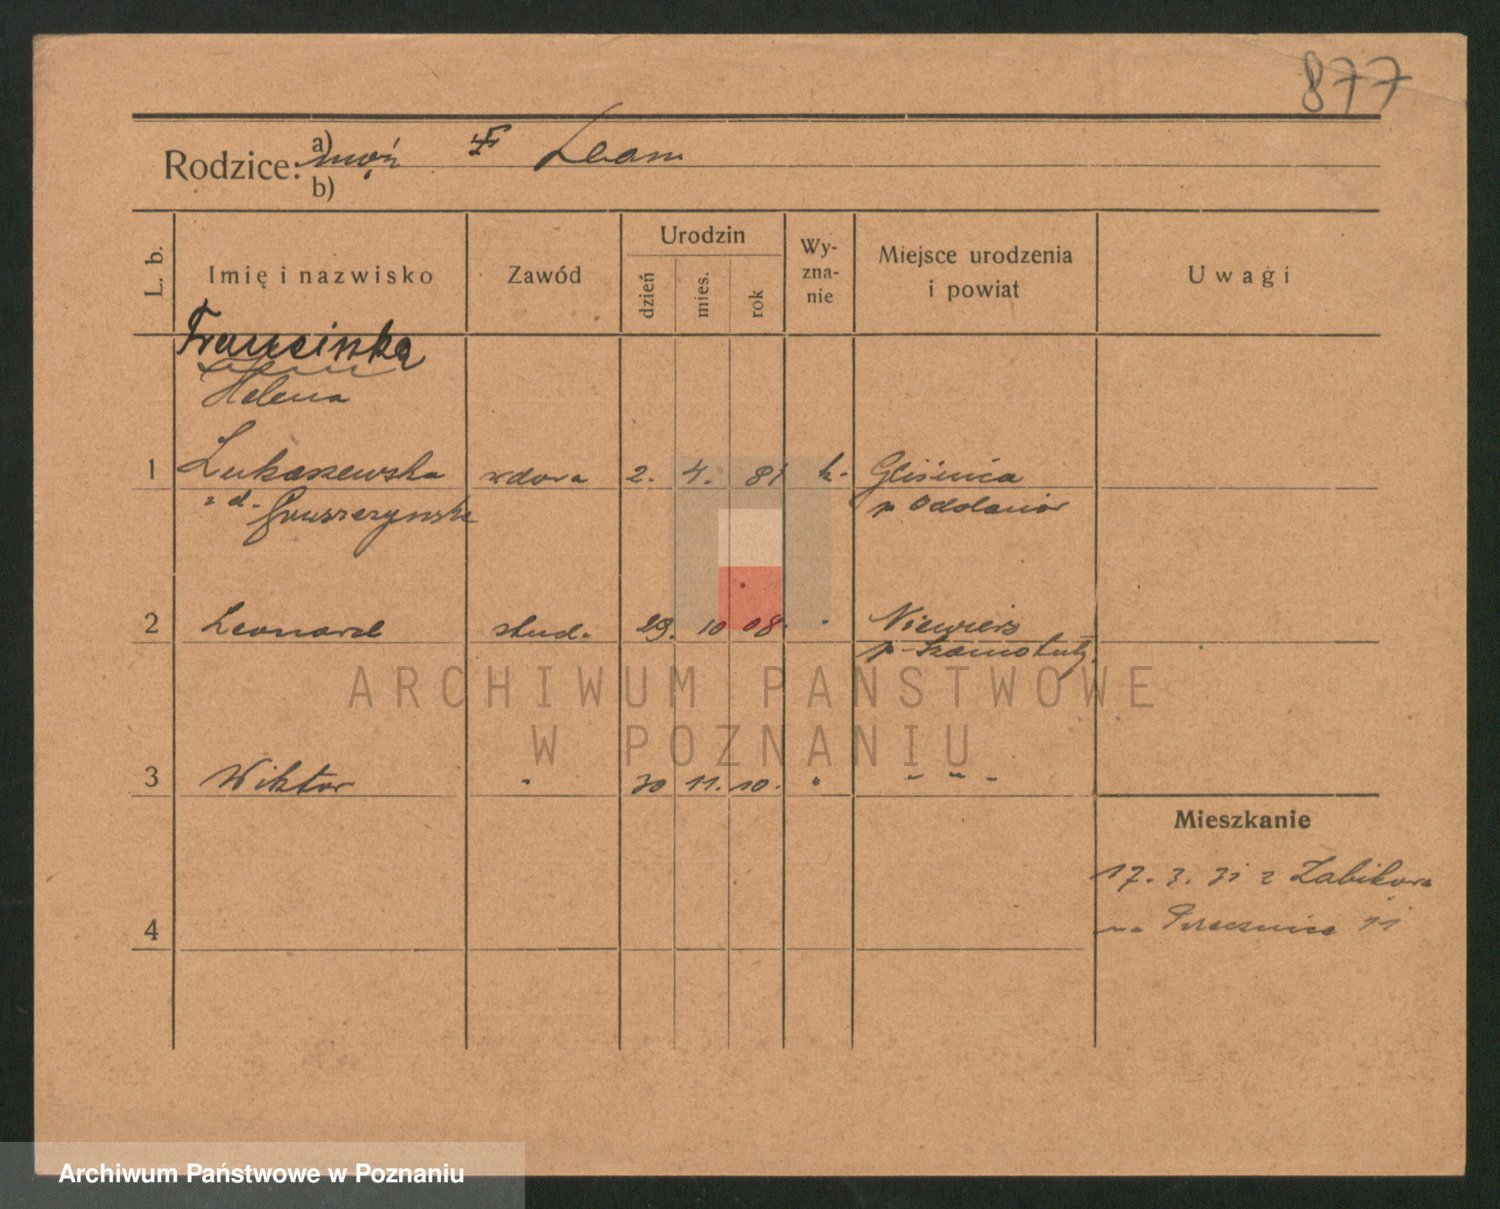 877
Rodzice: a) mąż Leon
b)
L. b.
Imię i nazwisko
Zawód
Urodzin
dzień
mies.
rok
Wy-
zna-
nie
Miejsce urodzenia
i powiat
Uwagi
Helena
1 Łukaszewska wdowa 2. 4. 81 k. Gliśnica
z d. Gruszczyńska p Odolanów
2 Leonard stud. 29. 10 08. " Niewierz
p-Szamotuły.
3 Wiktor " 30 11. 10. " " " "
4
Mieszkanie
17. 3. 31 z Żabikowa
na 11
ARCHIWUM PAŃSTWOWE
W POZNANIU
Archiwum Państwowe w Poznaniu